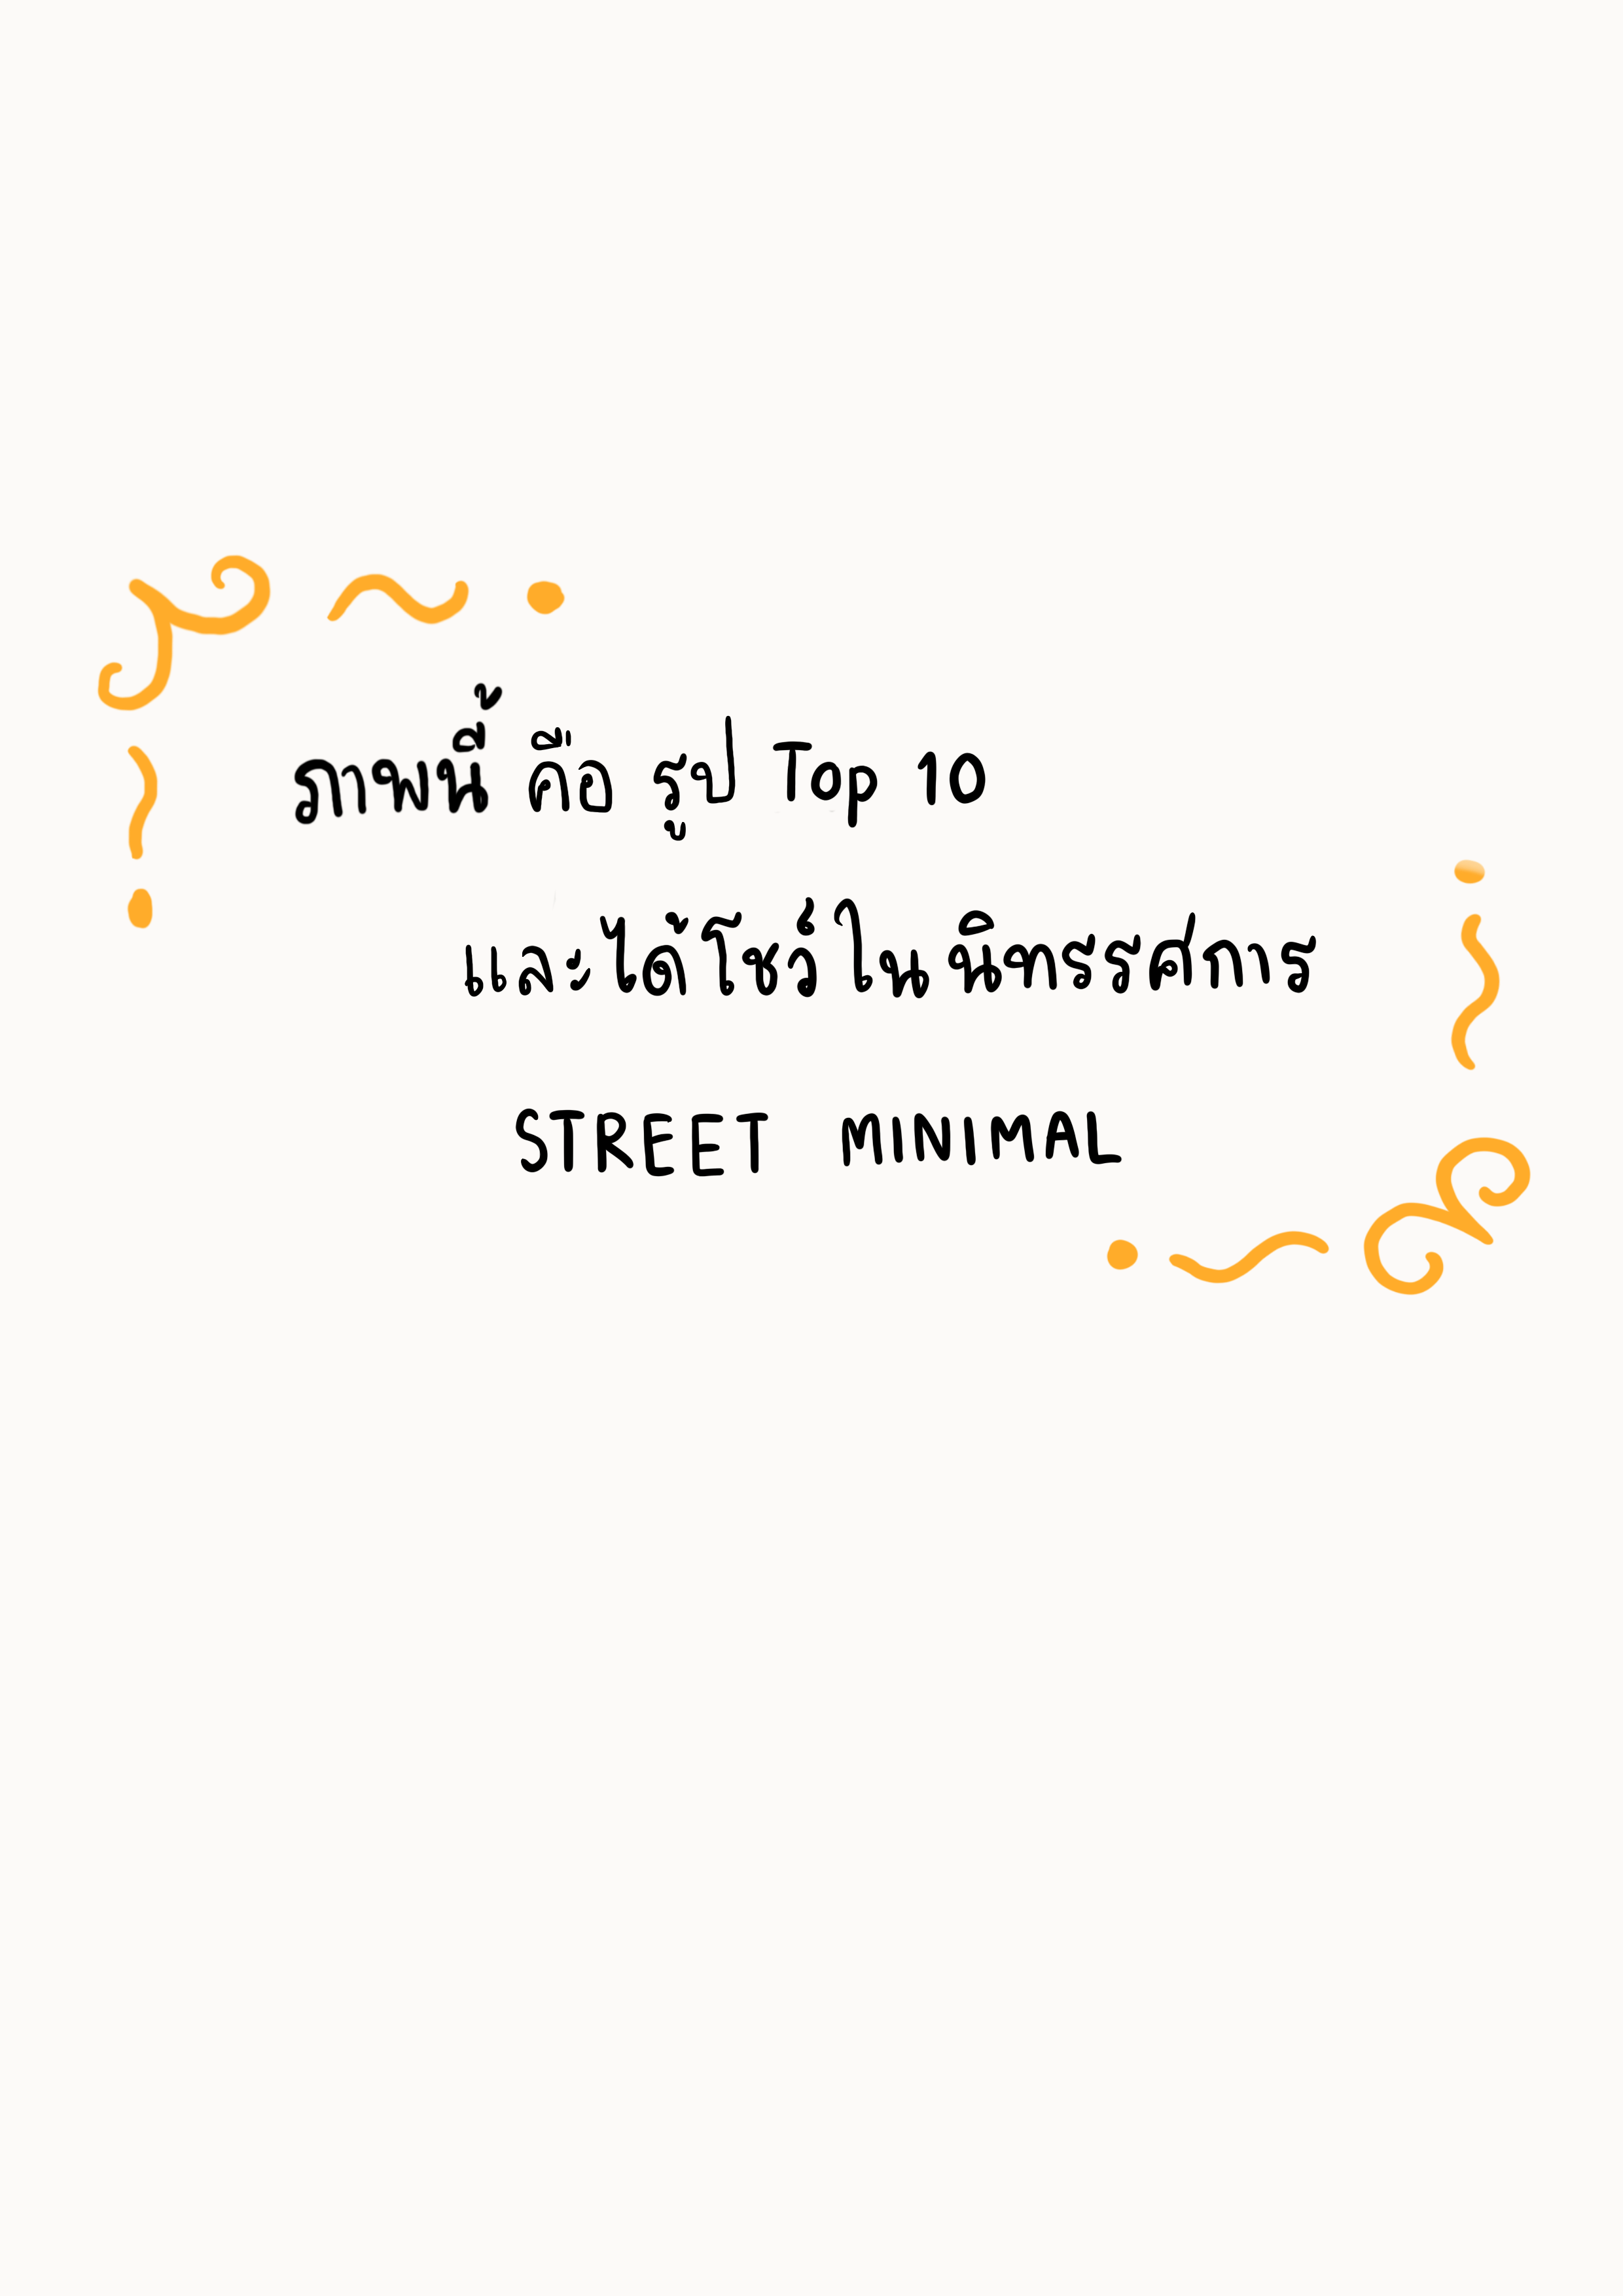 ภาพนี้ คือ รูป Top 10
และได้โชว์ในนิทรรศการ
STREET MINIMAL